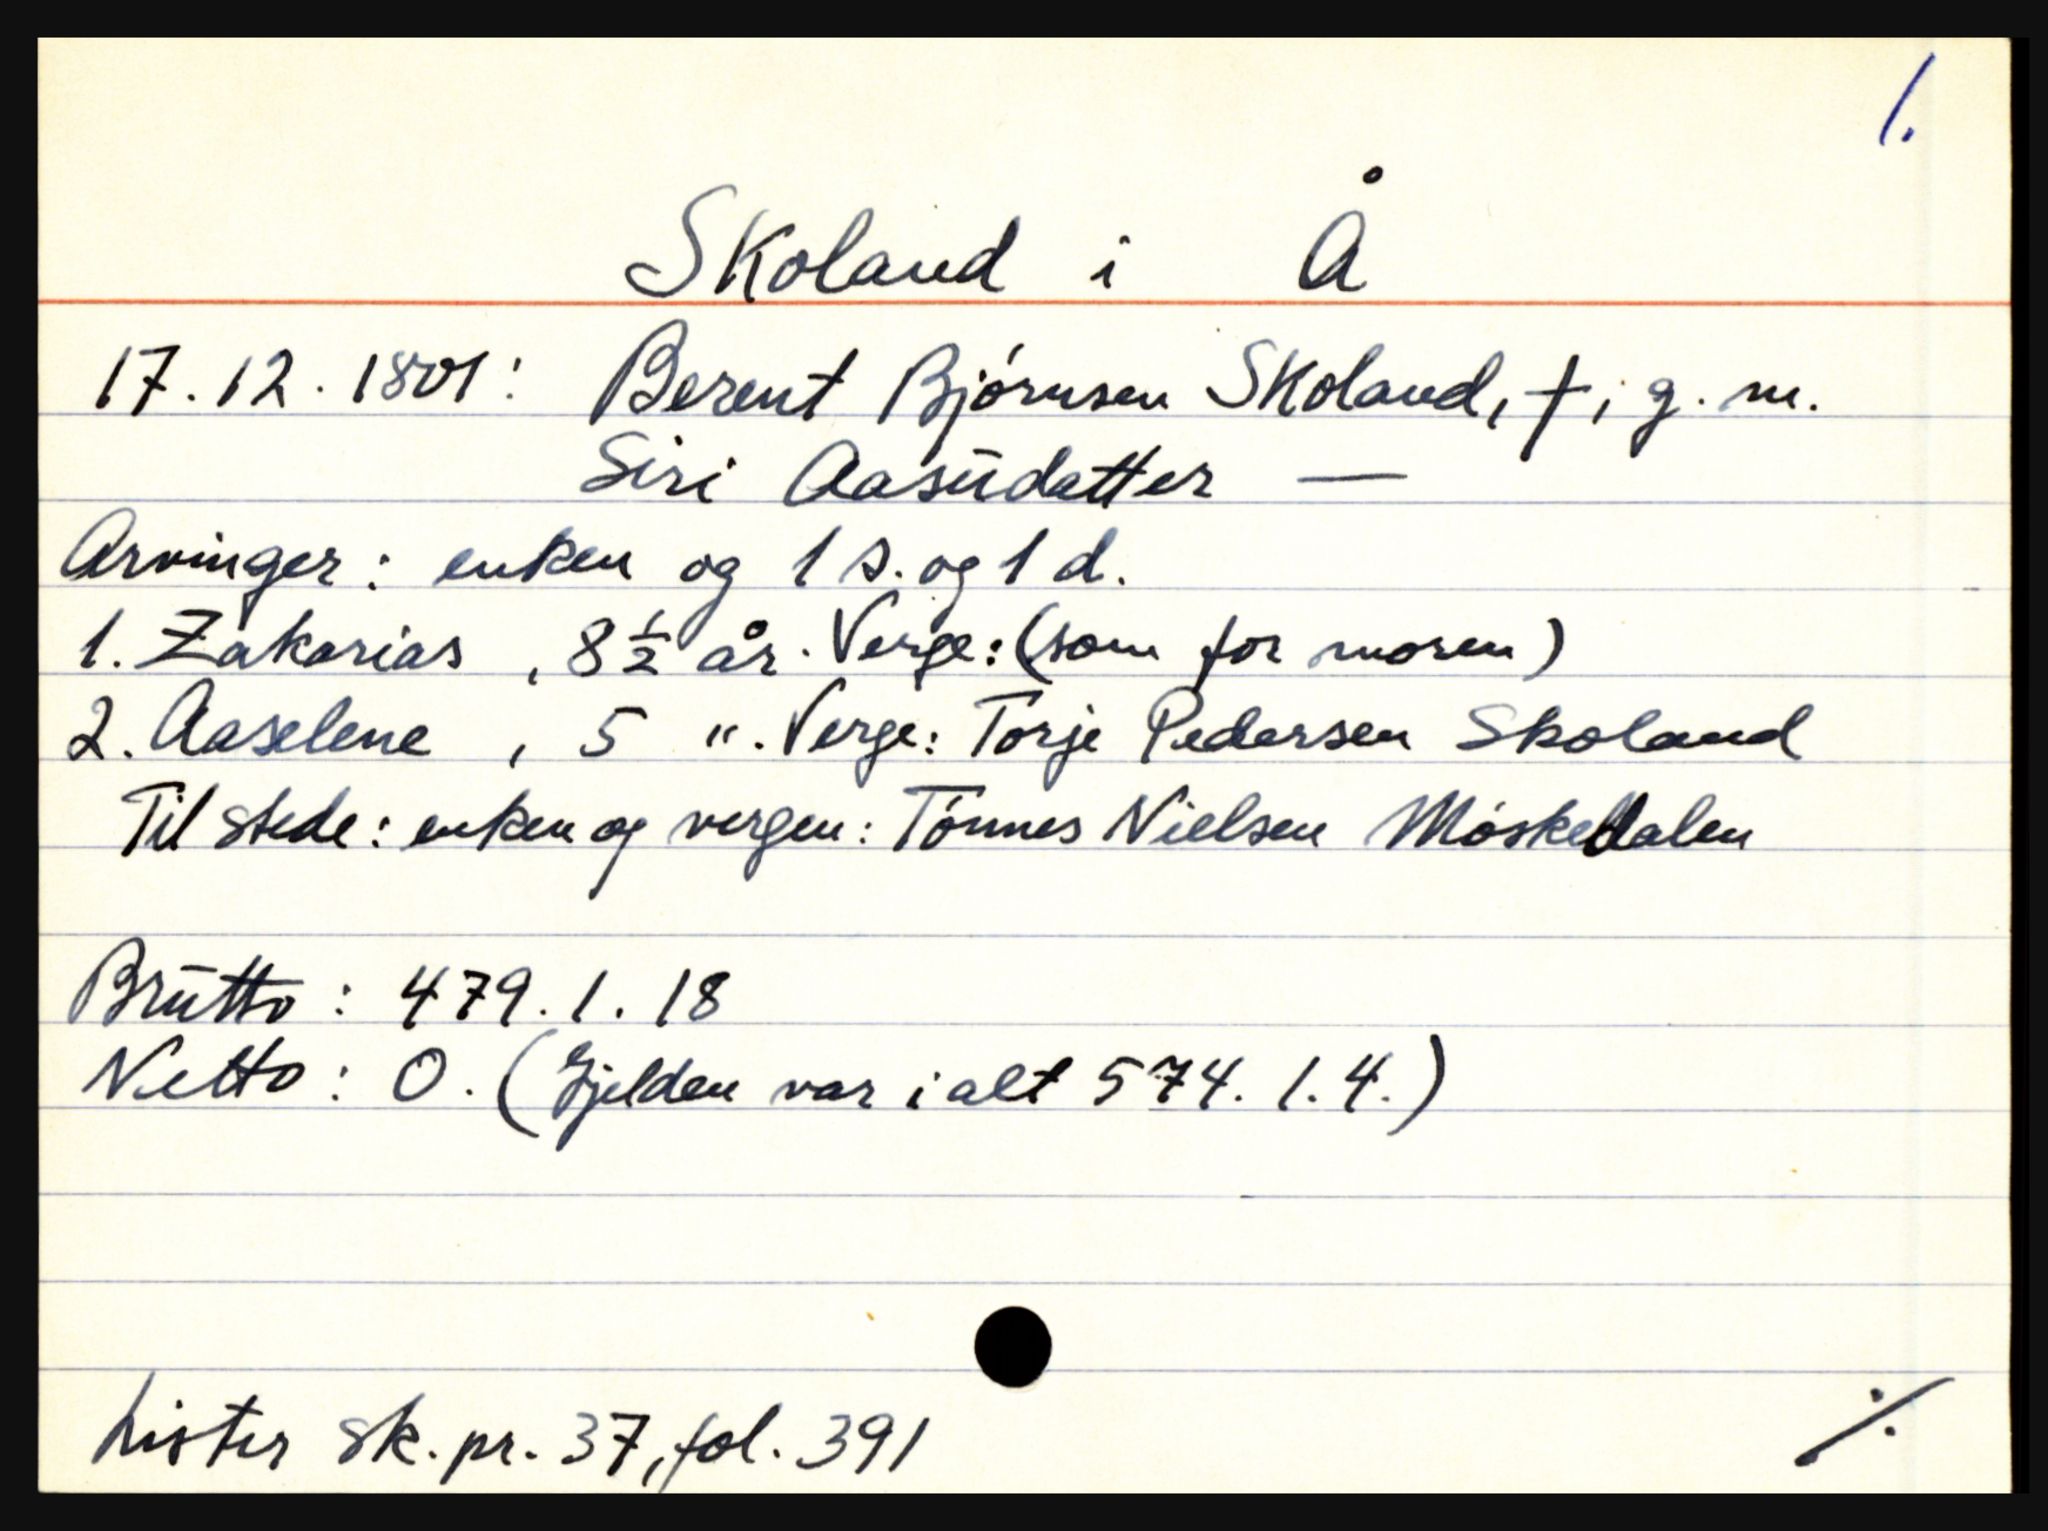 1.
Skoland i Å
17.12.1801: Berent Bjørnsen Skoland, †, g. m.
Siri Aasudatter —
Arvinger: enken og 1 s. og 1 d.
1. Zakarias , 8½ år. Verge: (som for moren)
2. Aaselene , 5 ". Verge: Torje Pedersen Skoland
Til stede: enken og vergen: Tønnes Nielsen Møskedalen
Brutto: 479.1.18
Netto: 0. (Gjelden var i alt 574.1.4.)
Lister sk.pr. 37, fol. 391
./.